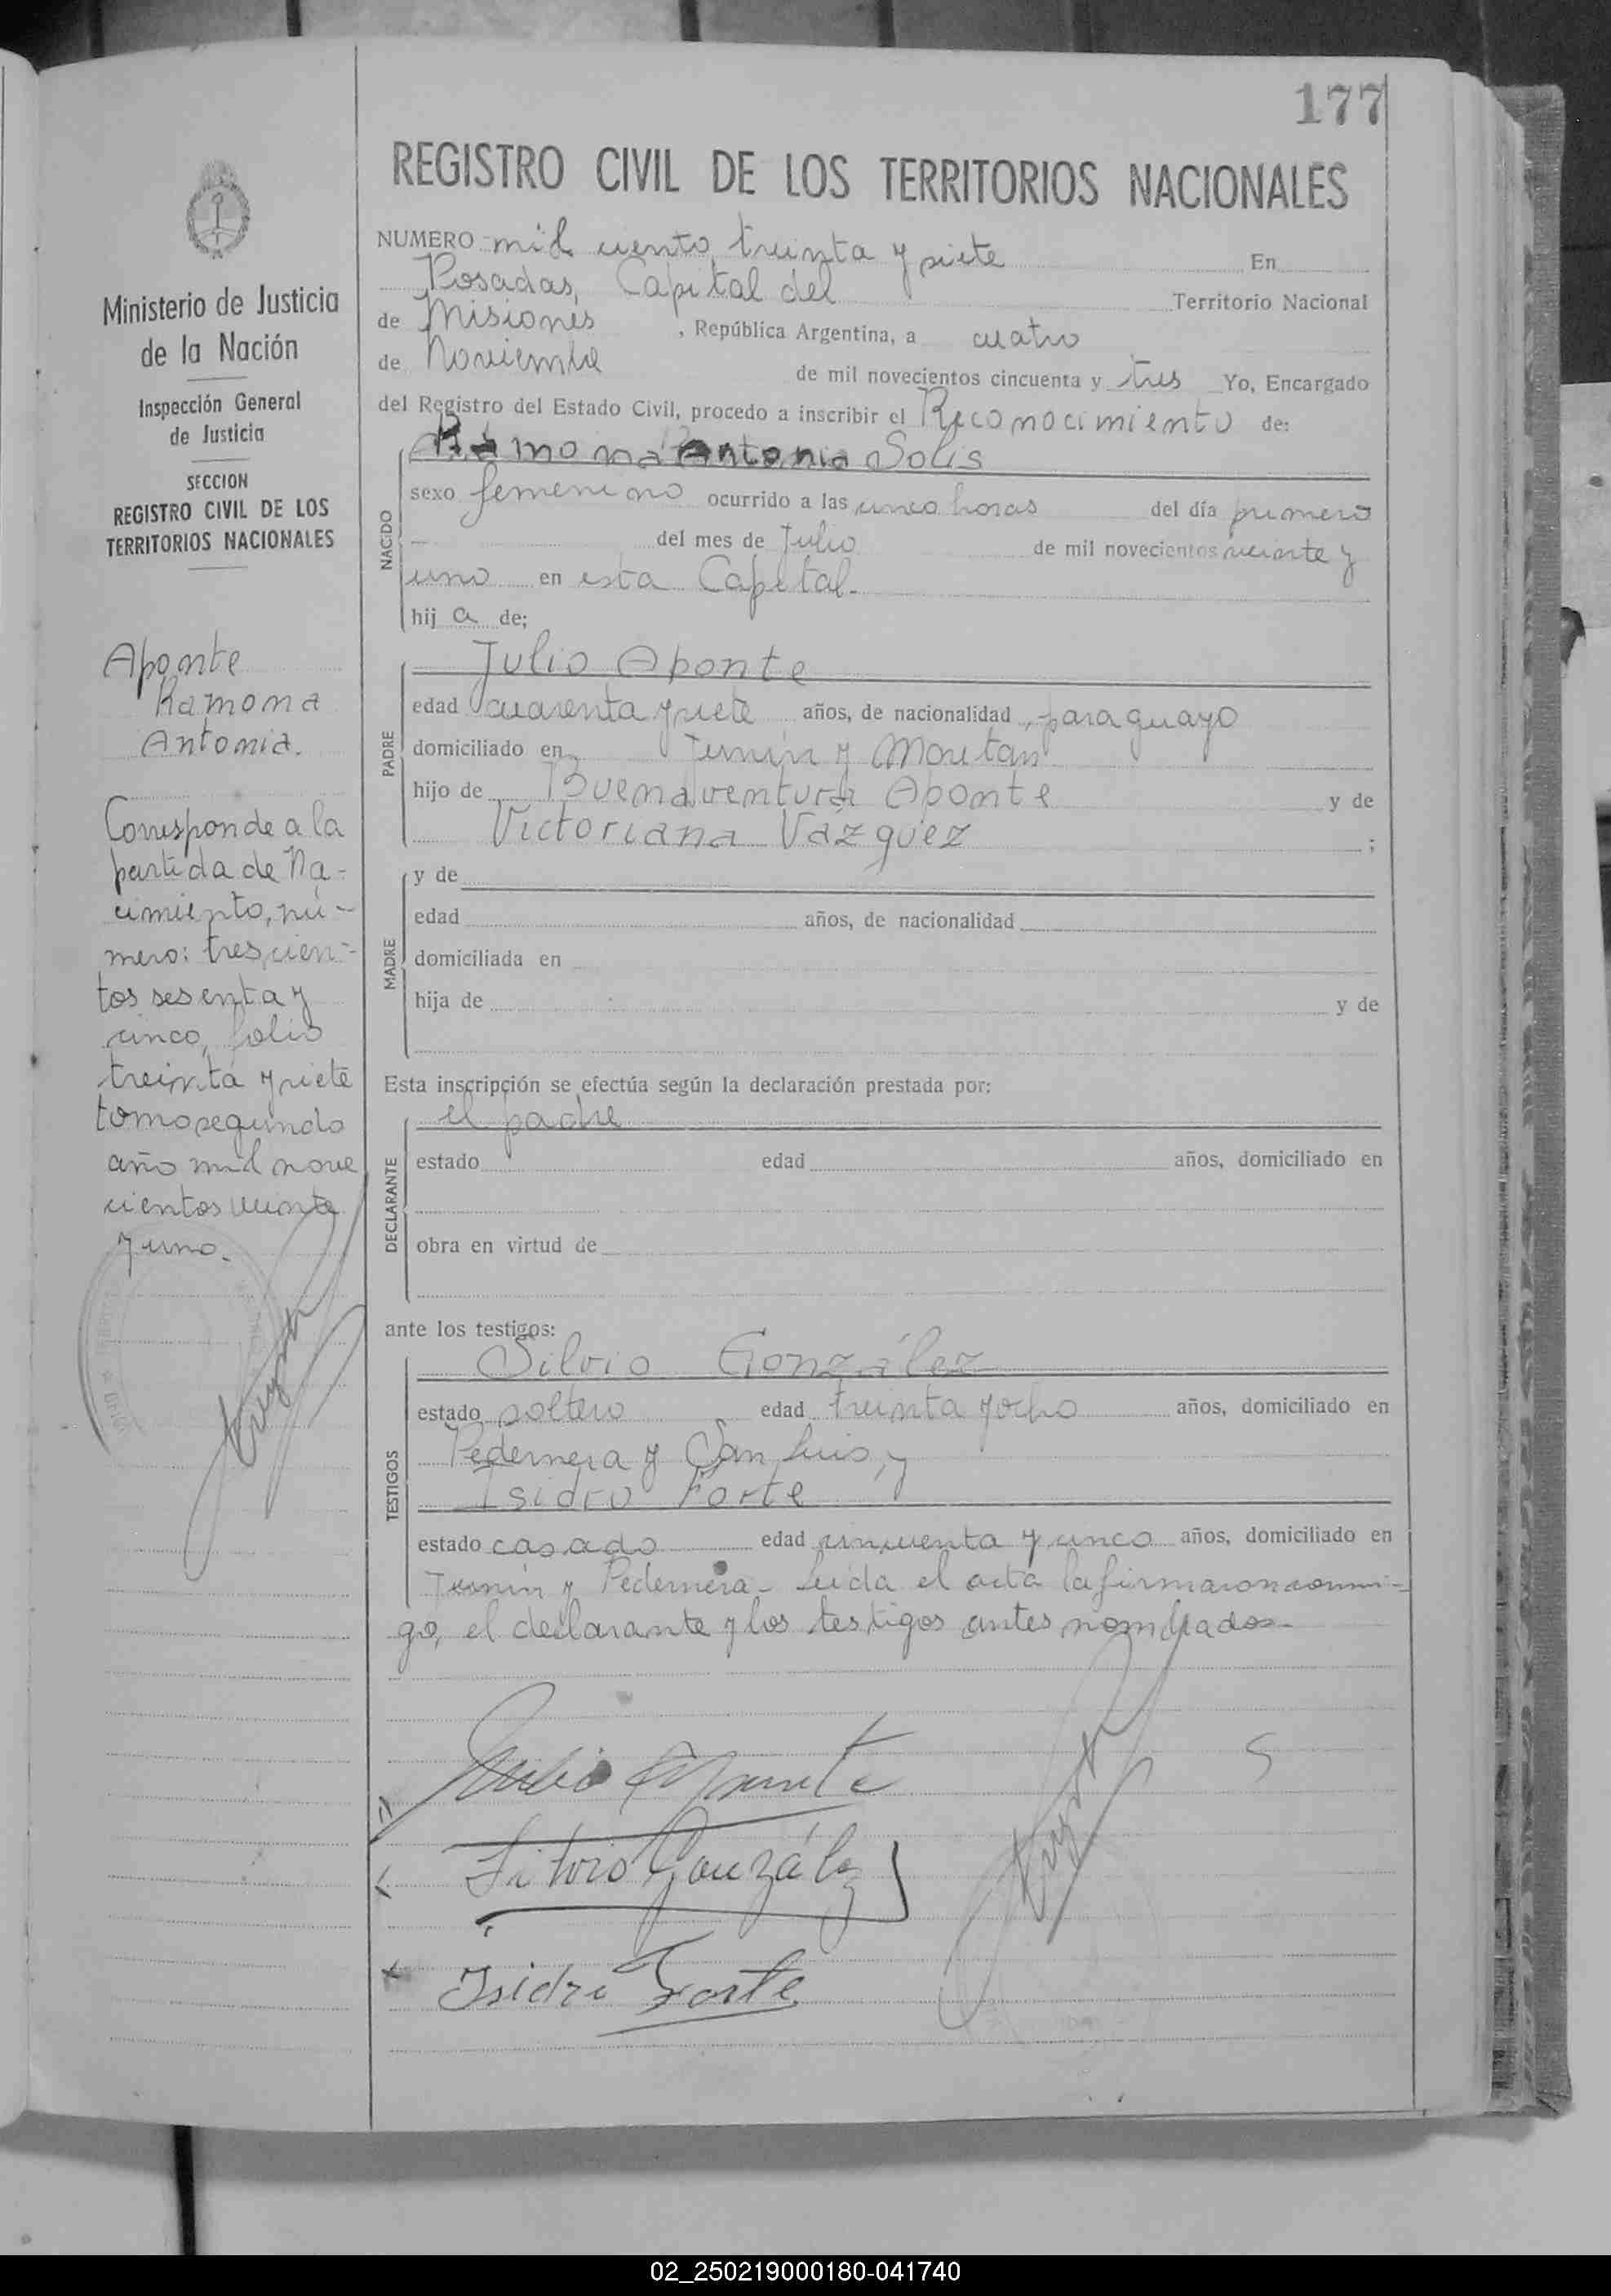 177
REGISTRO CIVIL DE LOS TERRITORIOS NACIONALES
Ministerio de Justicia
de la Nación
Inspección General
de Justicia
SECCION
REGISTRO CIVIL DE LOS
TERRITORIOS NACIONALES
Aponte
Ramona
Antonia.
Corresponde a la
partida de Na-
cimiento, nú-
mero: trescien-
tos sesenta y
cinco, folio
treinta y siete
tomo segundo
año mil nove
cientos veinte
y uno.
NUMERO mil ciento treinta y siete En
Posadas, Capital del Territorio Nacional
de Misiones, República Argentina, a cuatro
de Noviembre de mil novecientos cincuenta y tres Yo, Encargado
del Registro del Estado Civil, procedo a inscribir el Reconocimiento de:
NACIDO
Ramona Antonia Solis
sexo femenino ocurrido a las cinco horas del día primero
del mes de Julio de mil novecientos veinte y
uno en esta Capital.
hij a de;
PADRE
Julio Aponte
edad cuarenta y siete años, de nacionalidad paraguayo
domiciliado en Junín y
hijo de Buenaventura Aponte y de
Victoriana Vázquez ;
MADRE
y de
edad años, de nacionalidad
domiciliada en
hija de y de
Esta inscripción se efectúa según la declaración prestada por:
DECLARANTE
el padre
estado edad años, domiciliado en
obra en virtud de
ante los testigos:
TESTIGOS
Silvio González
estado soltero edad treinta y ocho años, domiciliado en
Pedernera y San Luis, y
Isidro Forte
estado casado edad cincuenta y cinco años, domiciliado en
Junín y Pedernera - Leida el acta la firmaron conmi-
go, el declarante y los testigos antes nombrados-
Julio Aponte
Silvio González
Isidro Forte
02_250219000180-041740